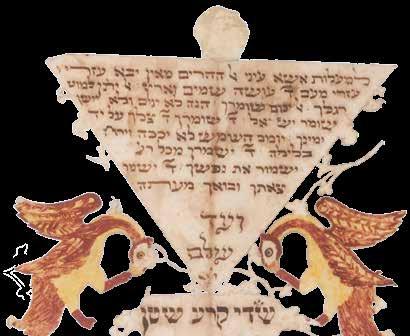 למעלות אשא עיני אל ההרים מאין יבא עזרי
עזרי מעם ד' עושה שמים וארץ אל יתן למוט
רגלך אל ינום שומרך הנה לא ינום ולא יישן
שומר ישראל ד' שומרך ד' צלך על
ימינך יומם השמש לא יככה וירח
בלילה ד' ישמרך מכל רע
ישמור את נפשך ד' ישמור
צאתך ובואך מעתה
ועד
עולם
שדי קרע שטן